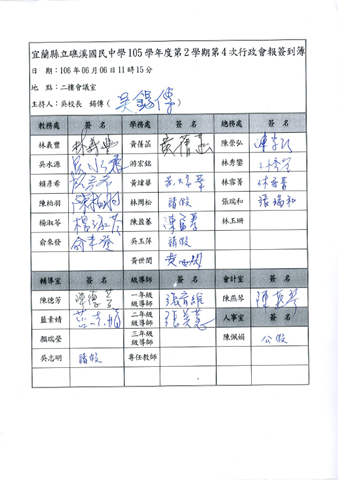 宜蘭縣立礁溪國民中學105學年度第2學期第4次行政會報簽到簿
日 期：106年06月06日11時15分
地 點：二樓會議室
主持人：吳校長 錫傳（吳錫傳）
教務處 簽 名 學務處 簽 名 總務處 簽 名
林義豐 林義豐 黃蒨蓝 陳崇弘
吳水源 游宏銘 林秀鑾
賴彥希 黃煒華 林雪菁 林雪菁
陳柏羽 陳柏羽 林周松 請假 張瑞和 張瑞和
楊淑苓 楊淑苓 陳盈蓁 陳盈蓁 林玉珊
俞東發 俞東發 吳玉萍 請假
黃世閔 黃世閔
輔導室 簽 名 級導師 簽 名 會計室 簽 名
陳德芳 陳德芳 一年級級導師 陳燕琴 陳燕琴
藍素靖 藍素靖 二年級級導師 張美慧 人事室 簽 名
顏瑞瑩 三年級級導師 陳佩娟 公假
吳志明 請假 專任教師